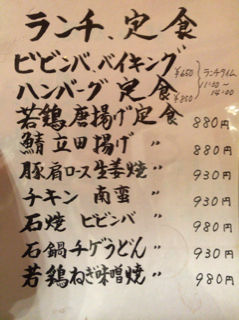 ランチ、定食
ビビンバ、バイキング ¥650
ハンバーグ 定食 ¥850
ランチタイム
11:00〜
14:00
若鶏唐揚げ定食 880円
鯖立田揚げ 〃 880円
豚肩ロース生姜焼〃 930円
チキン南蛮 〃 930円
石焼ビビンバ 〃 980円
石鍋チゲうどん〃 930円
若鶏ねぎ味噌焼〃 980円